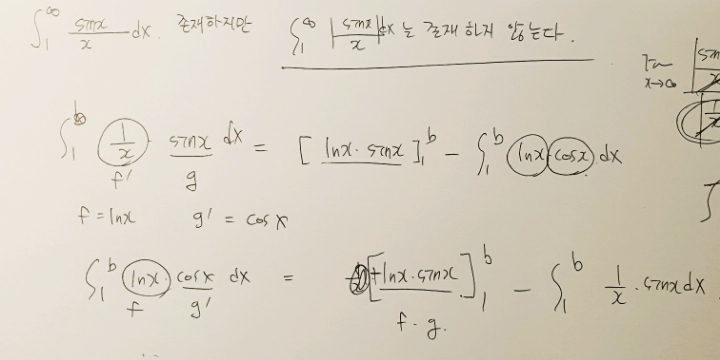 ∫₁^∞ sinx/x dx. 존재하지만 ∫₁^∞ |sinx/x| dx 는 존재하지 않는다.
lim x→∞ |sin
∫₁^b 1/x · sinx dx = [lnx · sinx]₁^b − ∫₁^b lnx · cosx dx
f' g
f = lnx g' = cosx
∫₁^b lnx · cosx dx = [+lnx · sinx]₁^b − ∫₁^b 1/x · sinx dx.
f g' f · g.